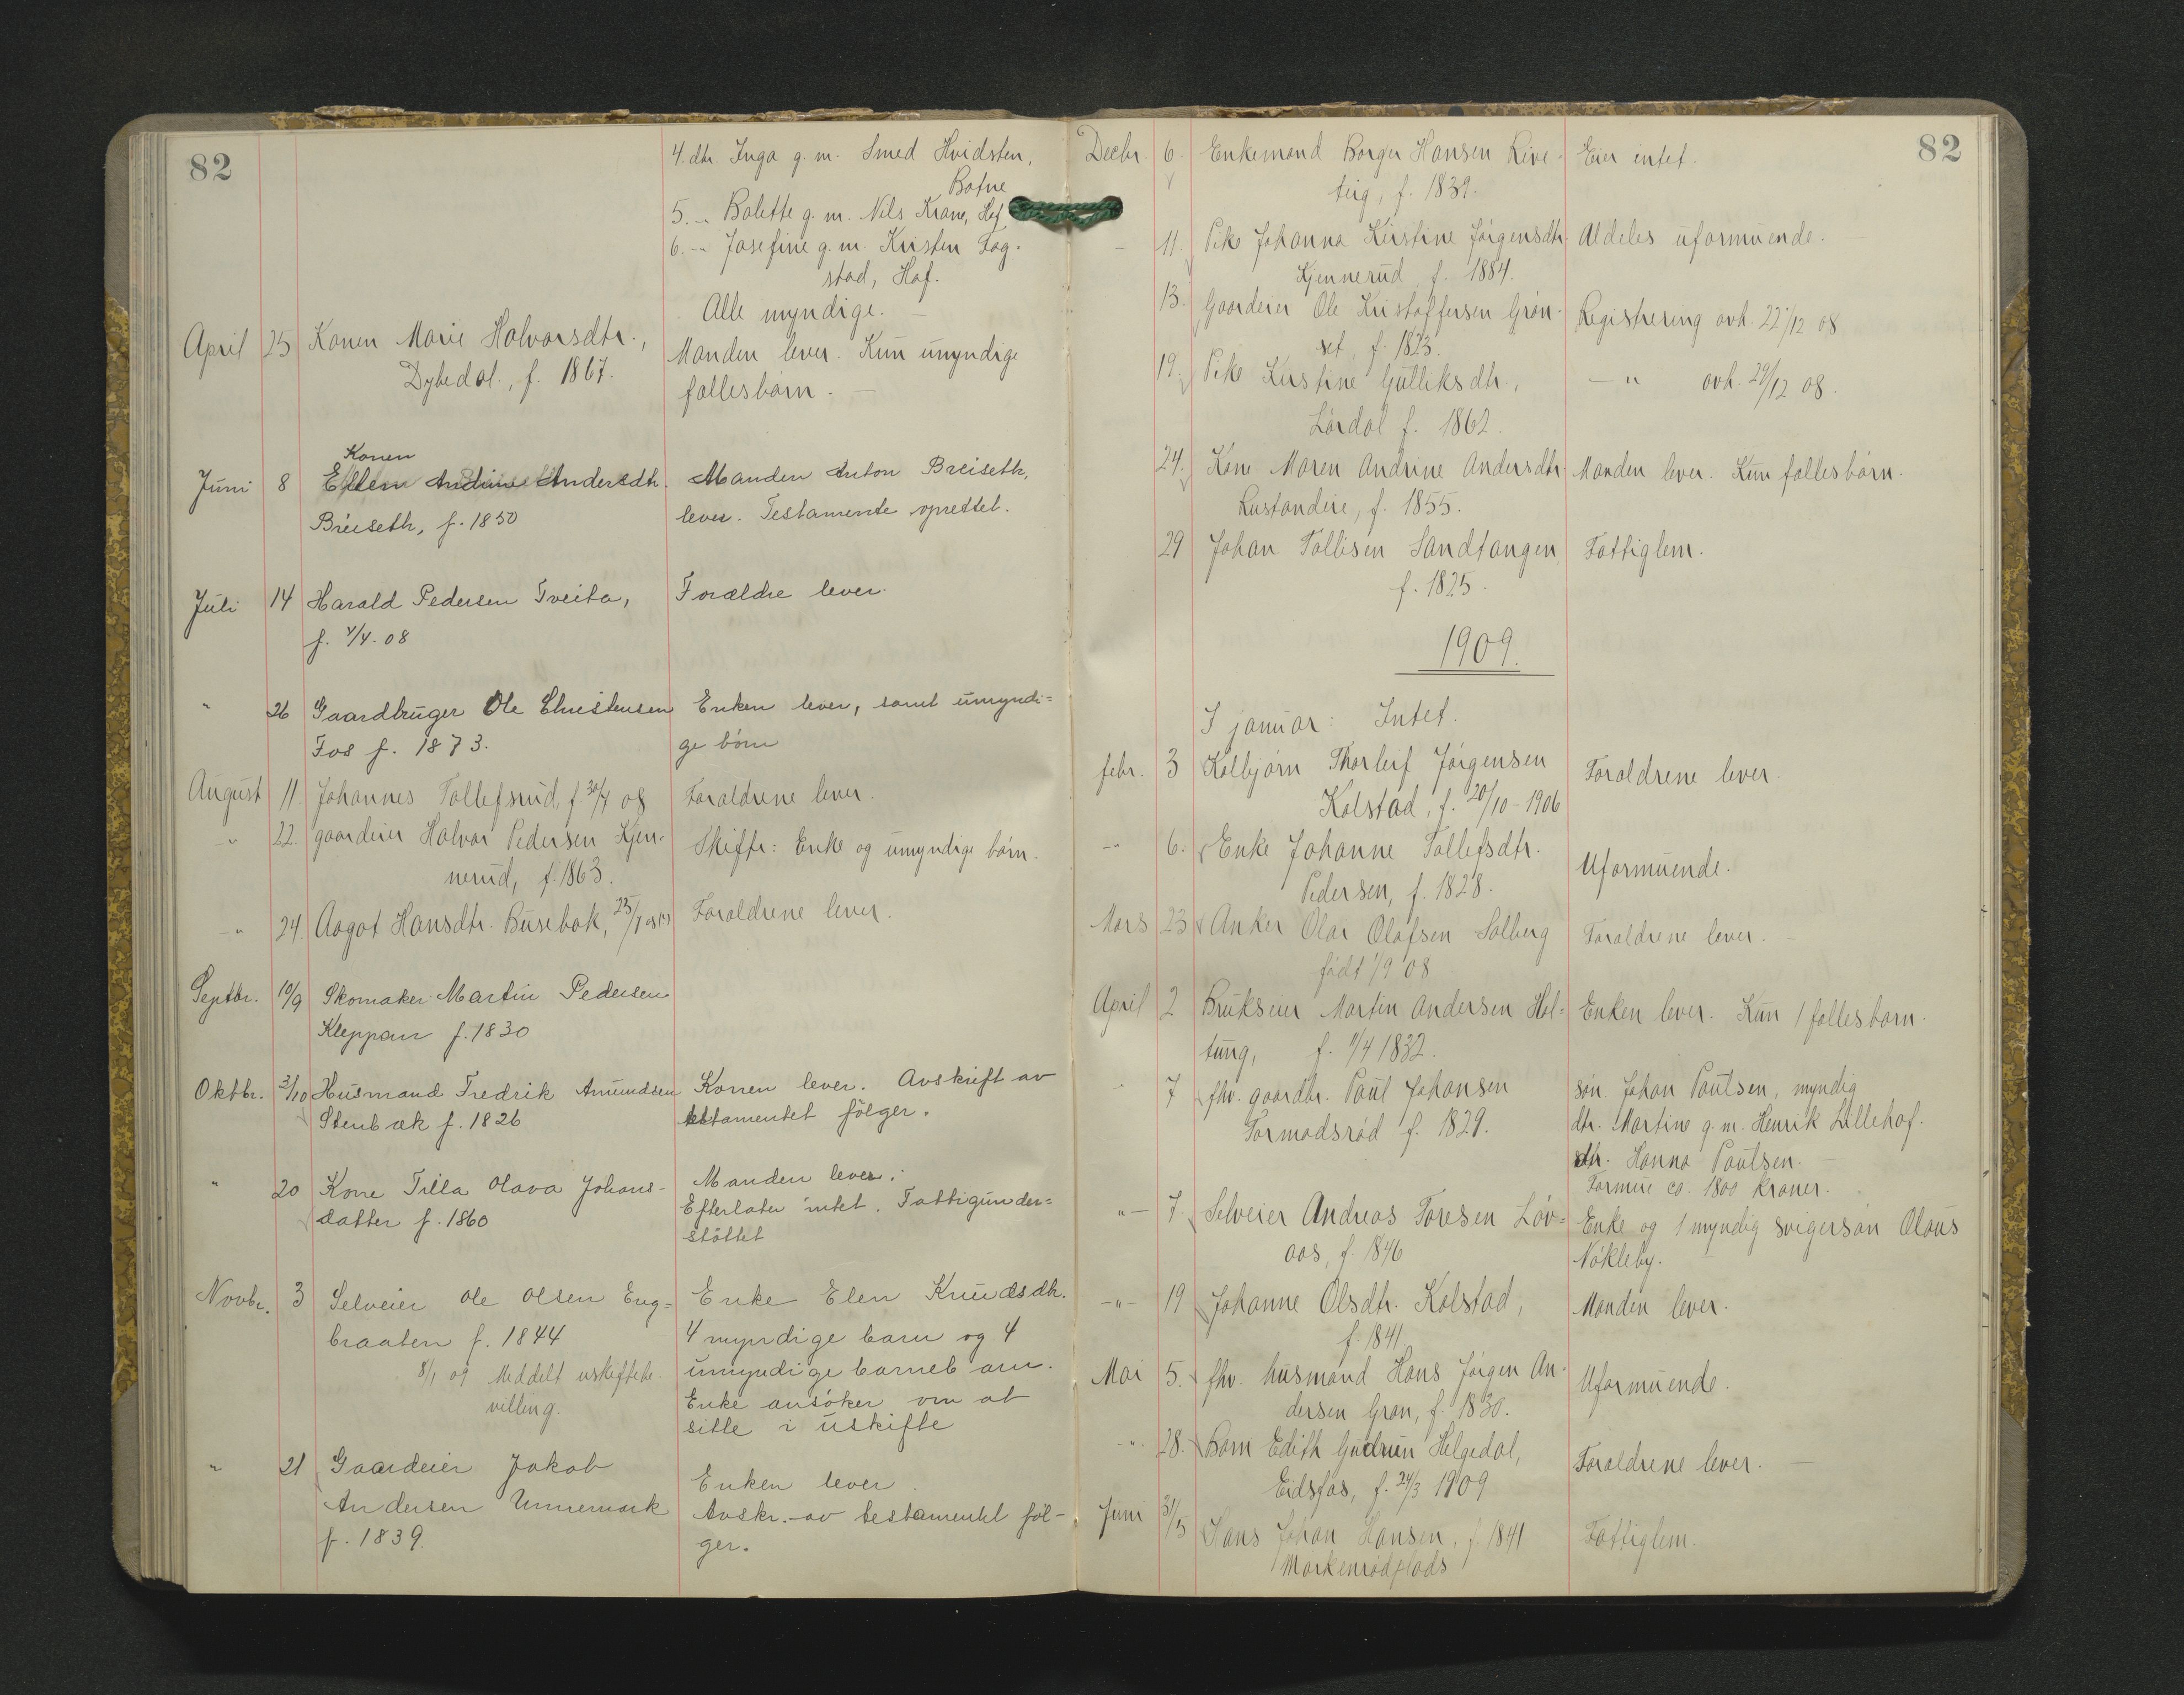 82
4. dtr. Inga g. m. Smed Hvidsten,
Botne
5. -„- Bolette g. m. Nils Krane, Hof
6. -„- Josefine g. m. Kristen Fog-
stad, Hof.
Alle myndige. —
April 25 Konen Marie Halvorsdtr., Manden lever. Kun umyndige
Dybedal., f. 1867. fællesbørn. —
Konen
Juni 8 Ellen Andrine Andersdtr. Manden Anton Breiseth,
Breiseth, f. 1850 lever. Testamente oprettet.
Juli 14 Harald Pedersen Tveita, Forældre lever.
f. 4/4-08
„ 26 Gaardbruger Ole Christensen Enken lever, samt umyndi=
Fos f. 1873. ge børn
August 11. Johannes Tollefsrud, f. 30/7 08 Forældrene lever.
-„- 22. gaardeier Halvor Pedersen Kjen- Skifte: Enke og umyndige børn.
nerud, f. 1863.
-„- 24. Aagot Hansdtr. Busebak, 25/7 08 Forældrene lever.
Septbr. 10/9 Skomaker Martin Pedersen
Kleppan f. 1830
Oktbr. 3/10 Husmand Fredrik Amundsen Konen lever. Avskrift av
Stenbæk f. 1826 testamentet følger.
„ 20 Kone Tilla Olava Johans- Manden lever.
datter f. 1860 Efterlater intet. Fattigunder=
støttet
Novbr. 3 Selveier Ole Olsen Eng= Enke Elen Knudsdtr.
braaten f. 1844 4 myndige barn og 4
8/1 09 Meddelt uskiftebe- umyndige barnebarn.
villing. Enke ansøker om at
sitte i uskifte
„ 21 Gaardeier Jakob Enken lever.
Andersen Unnemark Avskr. av testamentet føl-
f. 1839. ger.
82
Decbr. 6. Enkemand Borger Hansen Rive- Eier intet.
teig, f. 1839.
— 11. Pike Johanna Kirstine Jørgensdtr. Aldeles uformuende.
Kjennerud, f. 1884.
13. Gaardeier Ole Kristoffersen Grøn- Registrering avh. 22/12 08
set, f. 1823.
19. Pike Kirstine Gulliksdtr., — „ avh. 29/12 08.
Lørdal f. 1862.
24. Kone Maren Andrine Andersdtr. Manden lever. Kun fællesbørn.
Rustandeie, f. 1855.
29 Johan Tollisen Sandtangen Fattiglem.
f. 1825.
1909.
I januar: Intet.
febr. 3 Kolbjørn Thorleif Jørgensen Forældrene lever.
Kolstad, f. 20/10-1906
-„- 6. Enke Johanne Tollefsdtr. Uformuende.
Pedersen, f. 1828.
Mars 23 Anker Olar Olafsen Solberg Forældrene lever. —
født 1/9 08
April 2 Brukseier Martin Andersen Hol= Enken lever. Kun 1 fællesbarn.
tung, f. 11/4 1832.
„ 7 fhv. gaardbr. Paul Johansen søn. Johan Paulsen, myndig
Formodsrød f. 1829. dtr. Martine g. m. Henrik Lillehof.
dtr. Hanna Paulsen. —
Formue ca. 1800 kroner.
„— 7. Selveier Andreas Toresen Løv= Enke og 1 myndig svigersøn Olaus
aas, f. 1846 Nøkleby. —
-„- 19 Johanne Olsdtr. Kolstad, Manden lever.
f. 1841.
Mai 5. fhv. husmand Hans Jørgen An- Uformuende.
dersen Gran, f. 1830.
-„- 28. Barn Edith Gudrun Helgedal, Forældrene lever. —
Eidsfos, f. 24/3 1909
Juni 31/5 Hans Johan Hansen, f. 1841 Fattiglem.
Morkenrødplads